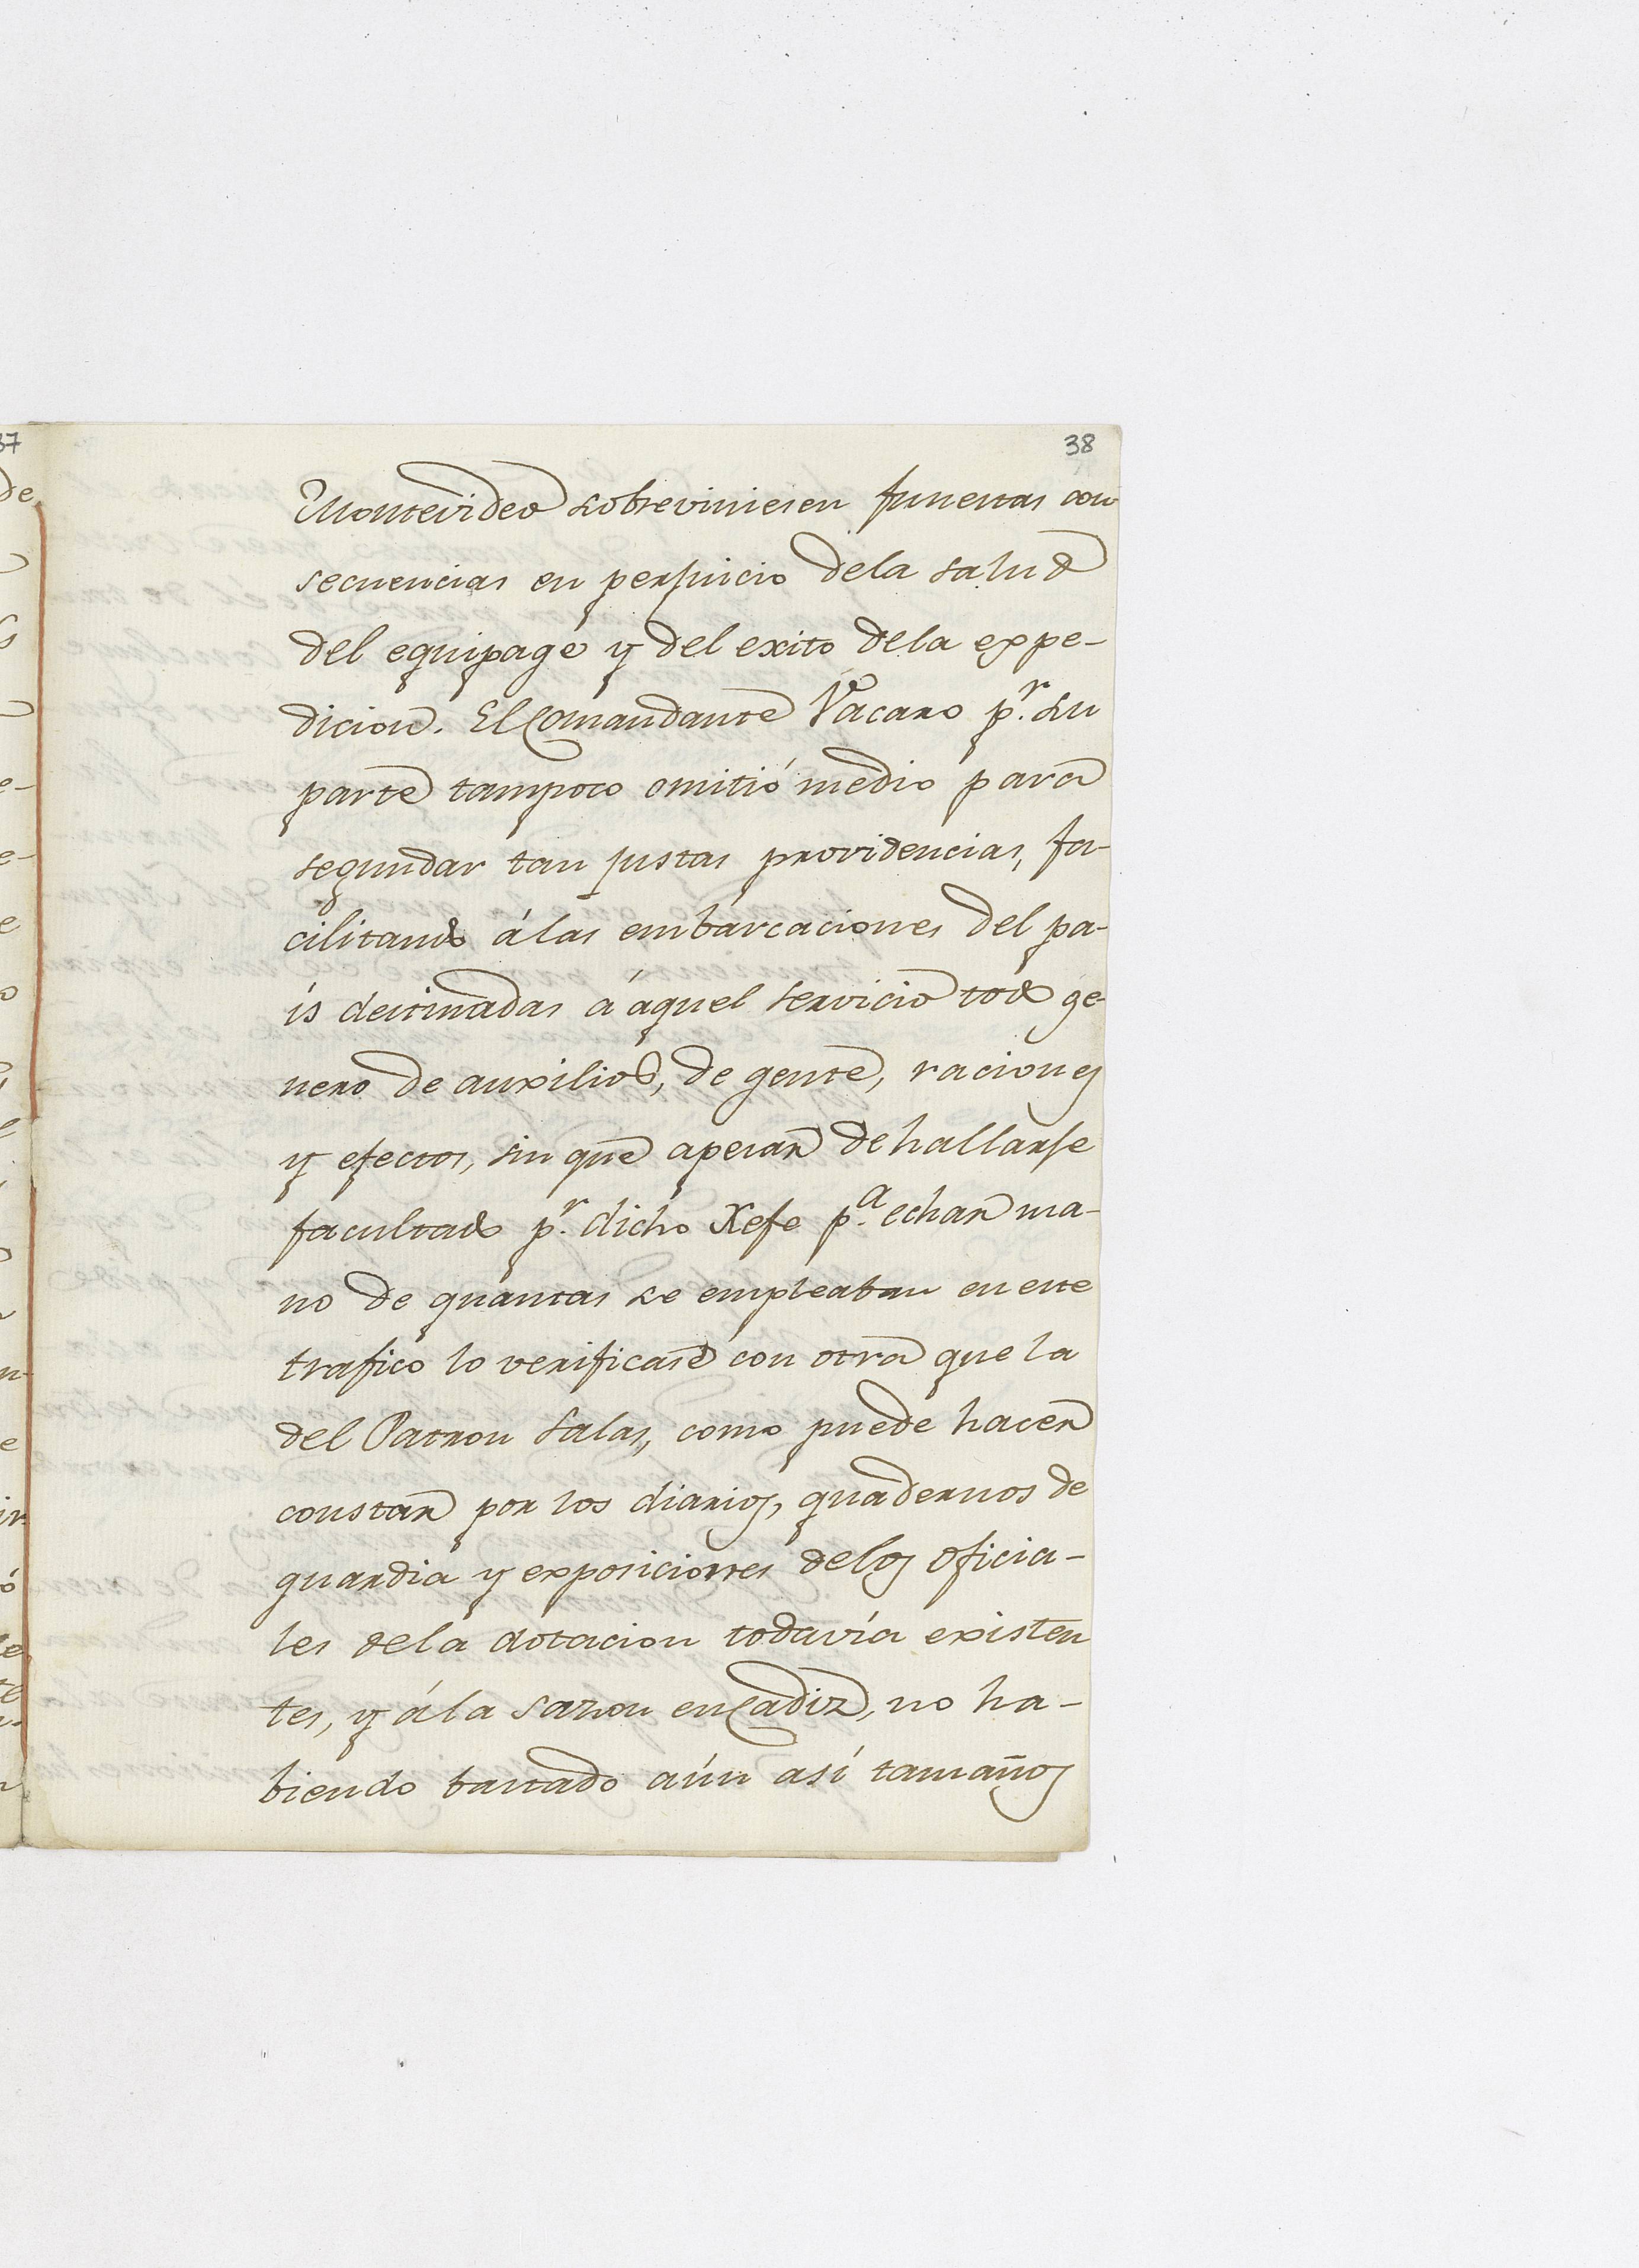 38
Montevideo sobreviniesen funestas con
secuencias en perjuicio dela salud
del equipage y del exito dela expe-
dicion. El Comandante Vacaro p.r su
parte tampoco omitió medio para
segundar tan justas providencias, fa-
cilitando á las embarcaciones del pa-
is destinadas á aquel servicio todo ge-
nero de auxilios, de gente, raciones
y efectos, sin que apesar de hallarse
facultado p.r dicho Xefe p.a echar ma-
no de quantas se empleaban en este
trafico lo verificase con otra que la
del Patron Salas, como puede hacer
constar por los diarios, quadernos de
guardia y exposiciones delos oficia-
les dela dotacion todavía existen
tes, y á la sazon en Cadiz, no ha-
biendo bastado aún así tamaños